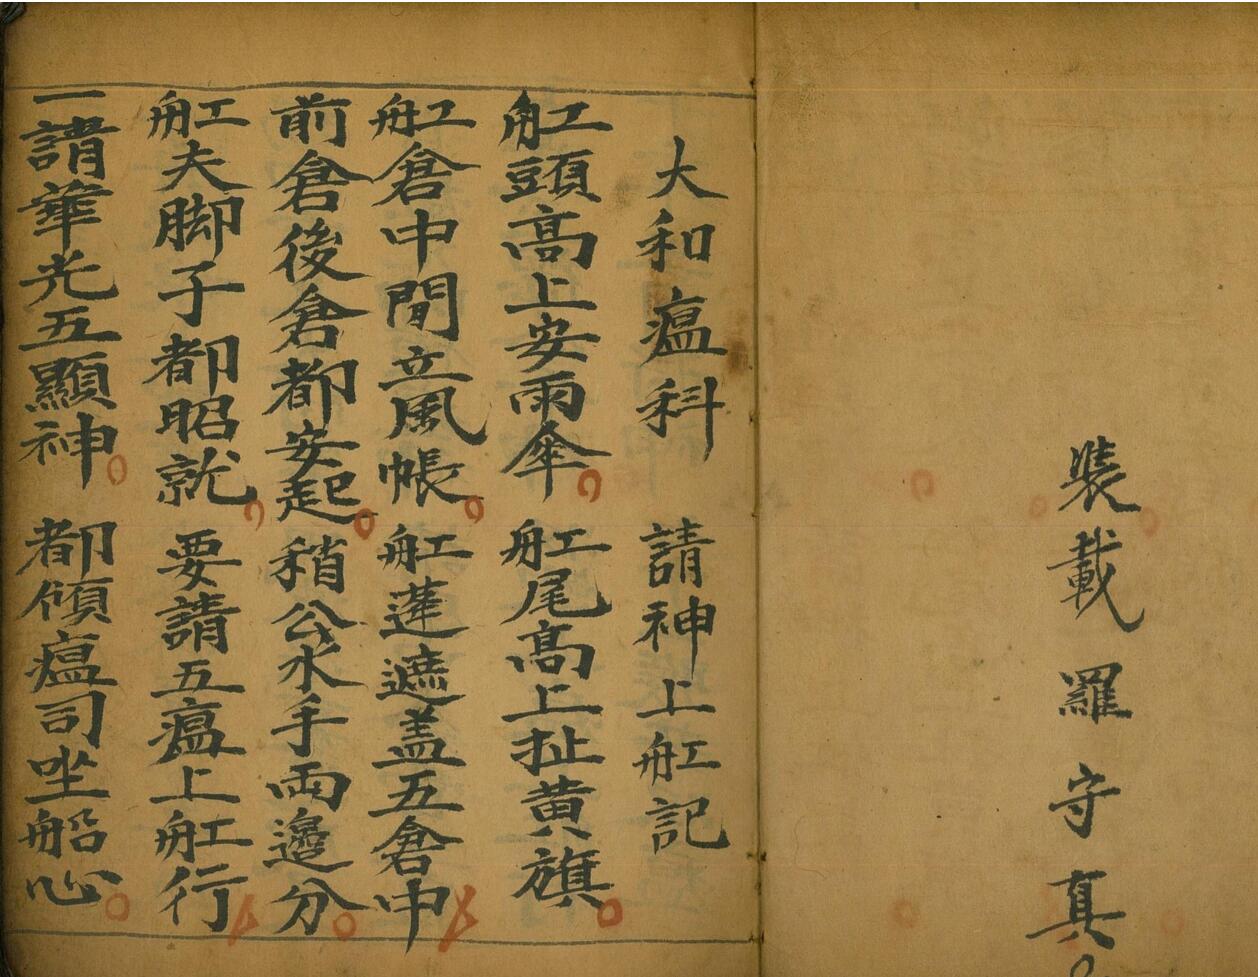 裝載羅守真
大和瘟科 請神上舡記
舡頭高上安雨傘 舡尾高上扯黄旗
舡倉中間立風帳 舡蓮遮盖五倉中
前倉後倉都安起 稍公水手両邊分
舡夫脚子都昭就 要請五瘟上舡行
一請華光五顯神 都傾瘟司坐船心